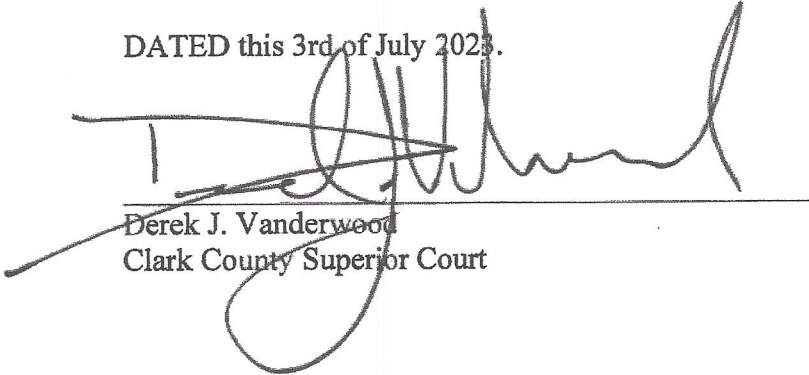 DATED this 3rd of July 2023.
Derek J. Vanderwood
Clark County Superior Court